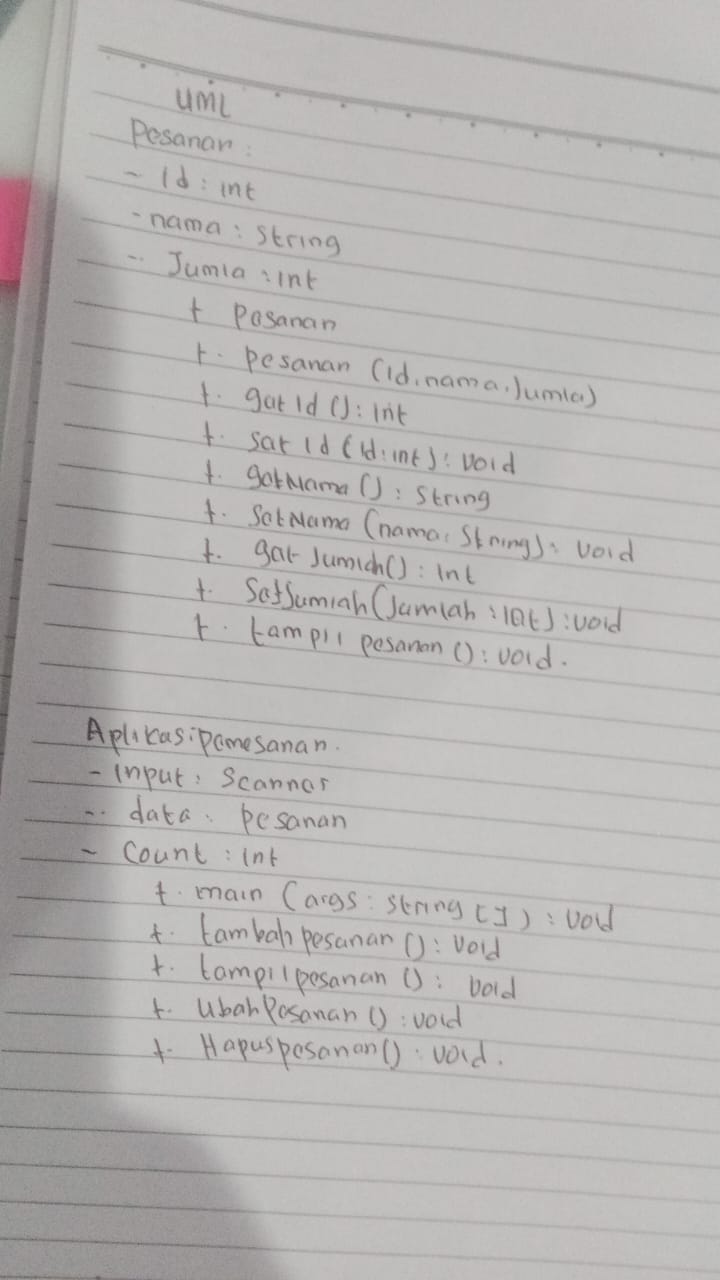 UML
Pesanan:
- Id : int
- nama : String
- Jumla : int
+ Pesanan
+. pesanan (id, nama, Jumla)
+. gat Id () : int
+. sat Id (Id : int) : void
+. gatNama () : String
+. SatNama (nama : String) : void
+. gat Jumlah() : Int
+. SatJumlah (Jumlah : int) : void
+. tampil pesanan () : void.
Aplikasi pemesanan.
- Input : Scanner
- data : pesanan
- Count : int
+. main (args : String []) : void
+. tambah pesanan () : void
+. tampilpesanan () : void
+. UbahPesanan () : void
+. Hapuspesanan() : void.